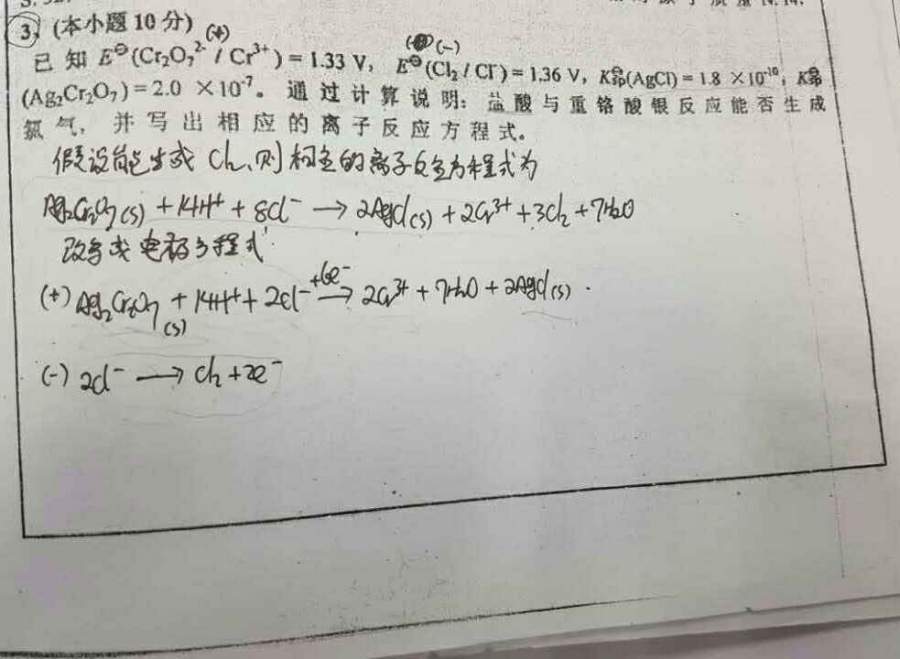 3、(本小题 10 分) (+) (-)
已知 E⊖(Cr₂O₇²⁻ / Cr³⁺) = 1.33 V, E⊖(Cl₂ / Cl⁻) = 1.36 V, K⊖sp(AgCl) = 1.8 ×10⁻¹⁰, K⊖sp
(Ag₂Cr₂O₇) = 2.0 ×10⁻⁷。通过计算说明: 盐酸与重铬酸银反应能否生成
氯气, 并写出相应的离子反应方程式。
假设能生成 Cl₂、则相应的离子反应方程式为
Ag₂Cr₂O₇(s) + 14H⁺ + 8Cl⁻ → 2AgCl(s) + 2Cr³⁺ + 3Cl₂ + 7H₂O
改写成电极方程式
(+) Ag₂Cr₂O₇(s) + 14H⁺ + 2Cl⁻ +6e⁻→ 2Cr³⁺ + 7H₂O + 2AgCl(s)
(-) 2Cl⁻ → Cl₂ + 2e⁻